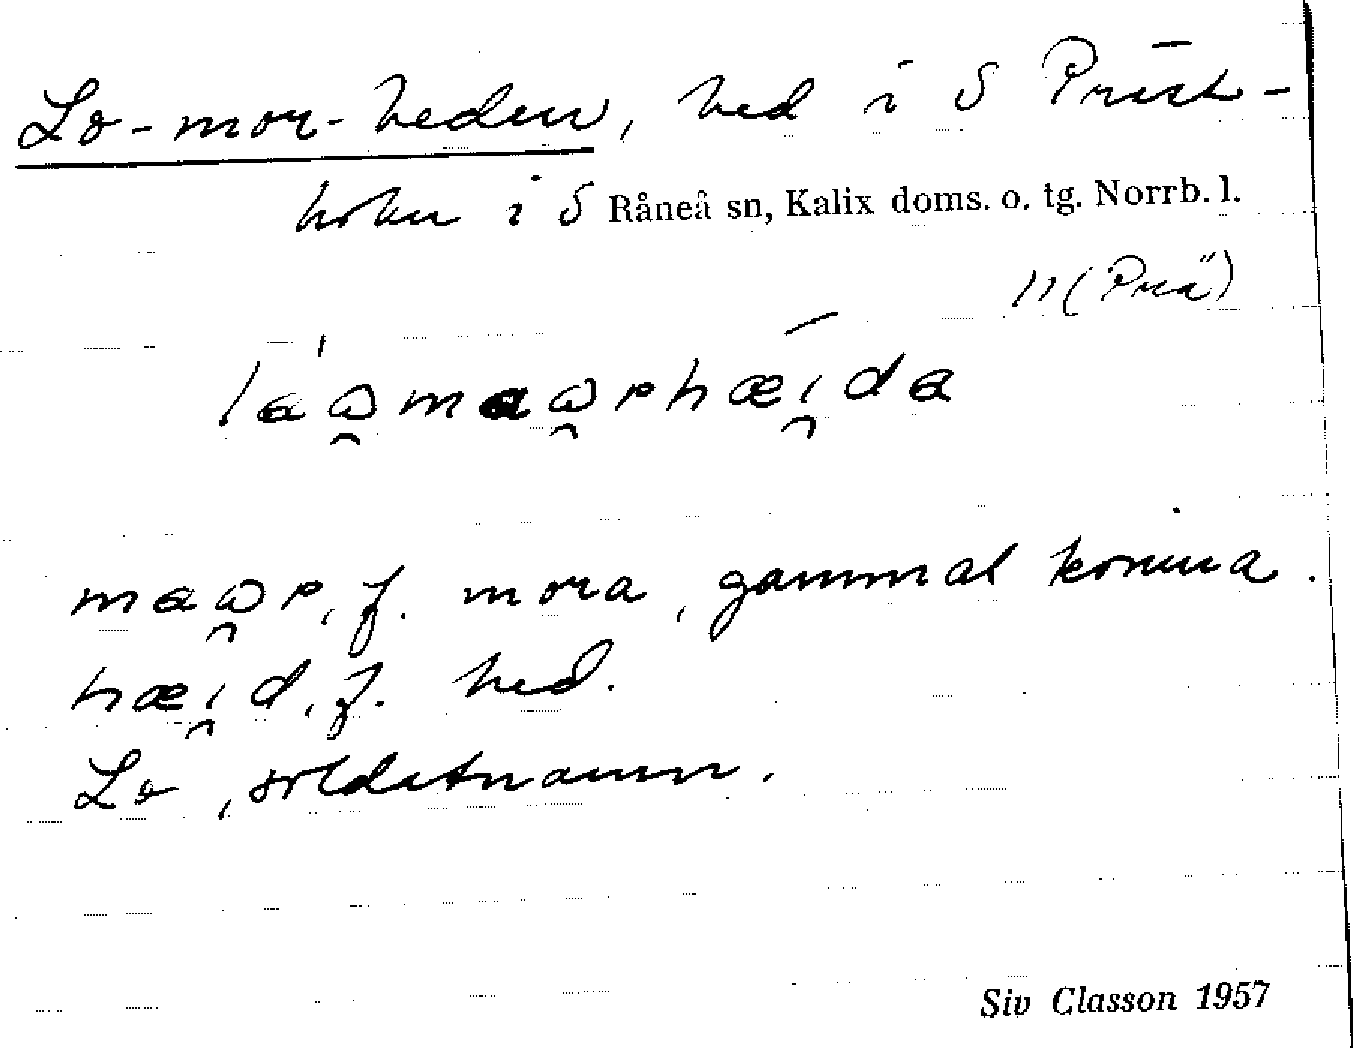 Lo-mor-heden, hed i S Präst-
holm i S Råneå sn, Kalix doms. o. tg. Norrb. l.
11 (Prä)
maωr, f. mora, gammal kvinna.
hæi̯d, f. hed.
Lo, soldatnamn.
Siv Classon 1957